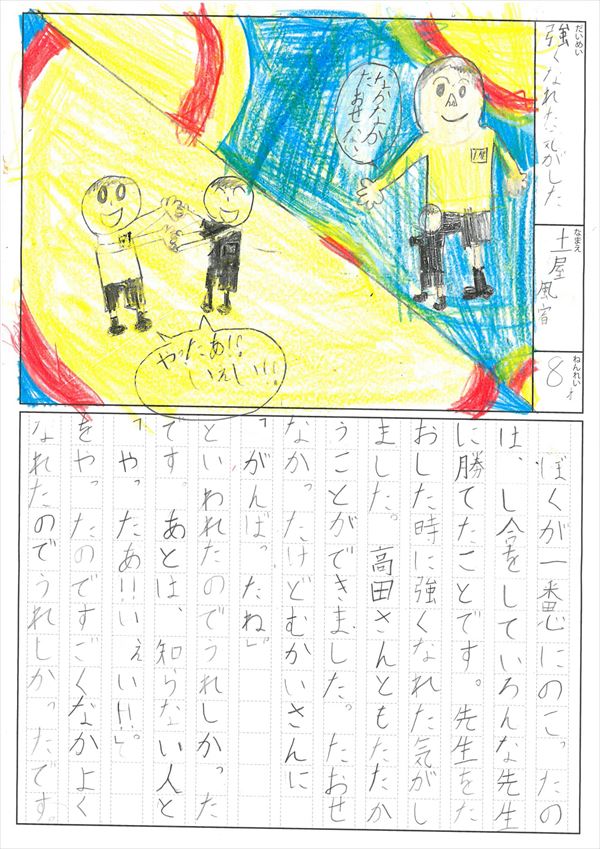 だいめい
強くなれた気がした
なまえ
土屋風宿
ねんれい
8才
なかなか
たおせない
土屋
やったあ!!
いえい!!
ぼくが一番心にのこったの
は、し合をしていろんな先生
に勝てたことです。先生をた
おした時に強くなれた気がし
ました。高田さんともたたか
うことができました。たおせ
なかったけどむかいさんに
「がんばったね」
といわれたのでうれしかった
です。あとは、知らない人と
「やったあ!!いえい!!」
をやったのですごくなかよく
なれたのでうれしかったです。